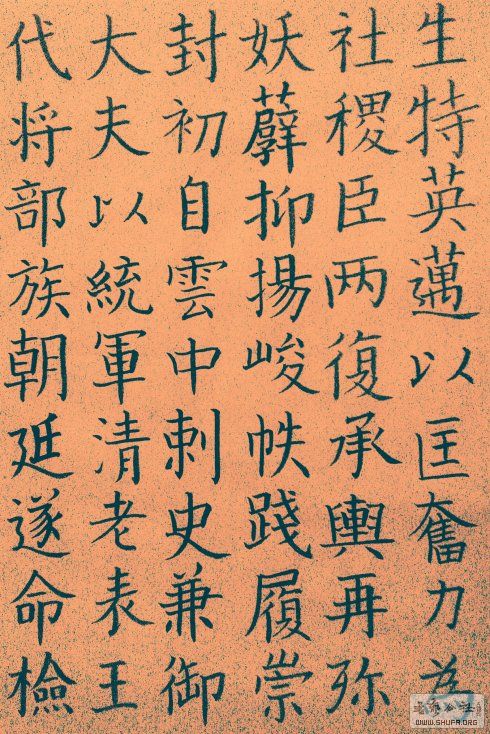 生特英邁以匡奮力為
社稷臣两復承輿再弥
妖孼抑揚峻帙踐履崇
封初自雲中刺史兼御
大夫以統軍清老表王
代将部族朝延遂命檢
WWW.SHUFA.ORG